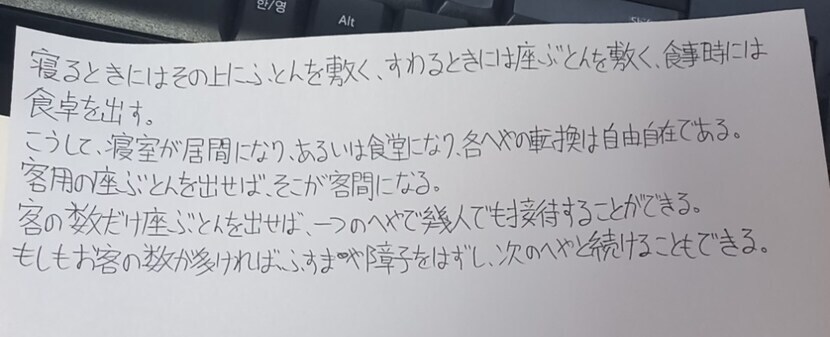 한/영
Alt
寝るときにはその上にふとんを敷く、すわるときには座ぶとんを敷く、食事時には
食卓を出す。
こうして、寝室が居間になり、あるいは食堂になり、各へやの転換は自由自在である。
客用の座ぶとんを出せば、そこが客間になる。
客の数だけ座ぶとんを出せば、一つのへやで幾人でも接待することができる。
もしもお客の数が多ければ、ふすまや障子をはずし、次のへやと続けることもできる。